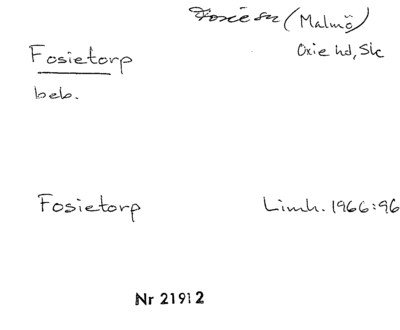 Fosie sn (Malmö)
Fosietorp
Oxie hd, Sk
beb.
Fosietorp Limh. 1966:96
Nr 21912